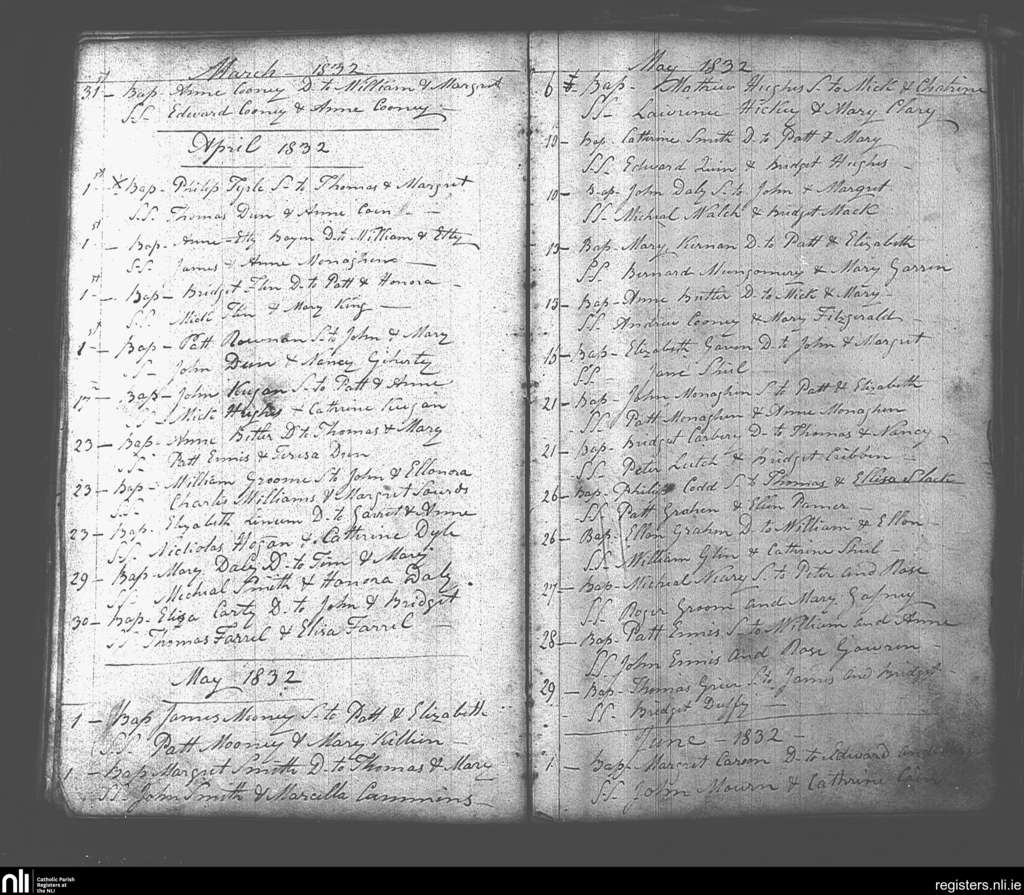 March 1832
31st – Bap Anne Cooney D. to William & Margret
SS. Edward Cooney & Anne Cooney –
April 1832
1st X Bap – Philip Tyrle S. to Thomas & Margret
SS. Thomas Dun & Anne Coen –
1st – Bap. Anne – Etty D. to William & Etty
SS. James & Anne Monaghen –
1st – Bap – Bridget Flin D. to Patt & Honora –
SS. Mick Flin & Mary King –
1st – Bap – Patt Rowman S. to John & Mary
SS. John Dun & Nancy Giherty
17 – Bap – John Keegan S. to Patt & Anne
SS. Mick Hughs & Cathrine Keegan
23 – Bap – Anne Bitter D. to Thomas & Mary
SS. Patt Ennis & Teresa Dun
23 – Bap – William Groome S. to John & Ellonora
SS. Charles Williams & Margret Sourds
23 – Bap. Elizabeth D. to Garret & Anne
SS. Nickolas Hogan & Catherine Dyle
29 – Bap – Mary Daly D. to Tim & Mary
SS. Micheal Smith & Honora Daly
30 – Bap – Eliza Carty D. to John & Bridget
SS Thomas Farrel & Eliza Farrel –
May 1832
1 – Bap James Mooney S. to Patt & Elizabeth
SS. Patt Mooney & Mary Killien –
1 – Bap Margret Smith D. to Thomas & Mary
SS. John Smith & Marcella Cammins
May 1832
6 Bap – Mathew Hughs S. to Mick & Chatrine
SS – Lawrence Hickie & Mary Clary
10 – Bap. Cathrine Smith D. to Patt & Mary
SS. Edward Quin & Bridget Hughes –
10 – Bap. John Daly S. to John & Margret
SS – Micheal Walch & Bridget Mack
13 – Bap – Mary Kirnan D. to Patt & Elizabeth
SS. Bernard Mungomery & Mary Garren
13 – Bap – Anne Butter D. to Mick & Mary –
SS. Andrew Cooney & Mary Fitzgerald –
13 – Bap – Elizabeth Gavon D. to John & Margret
SS. Jane Shiel
21 – Bap – John Monaghen S. to Patt & Elizabeth
SS. Patt Monaghen & Anne Monaghen
21 – Bap – Bridget Carbery D. to Thomas & Nancy
SS. Peter Leitch & Bridget Cribbin –
26 – Bap – Philip Codd S. to Thomas & Elliza Slacke
SS. Patt Grahen & Ellen Pamer
26 – Bap – Ellon Grahen D. to William & Ellon –
SS. William Glin & Cathrine Shiel –
27 – Bap – Micheal Neary S. to Peter and Rose
SS. Roger Groom and Mary Gafney
28 – Bap – Patt Ennis S. to William and Anne
SS. John Ennis and Rose Gowron –
29 – Bap – Thomas Greer S. to James and Bridget
SS. Bridget Duffy –
June – 1832 –
1 – Bap – Margret Carson D. to Edward and
SS. John Mourn & Cathrine
nli
Catholic Parish
Registers at
the NLI
registers.nli.ie